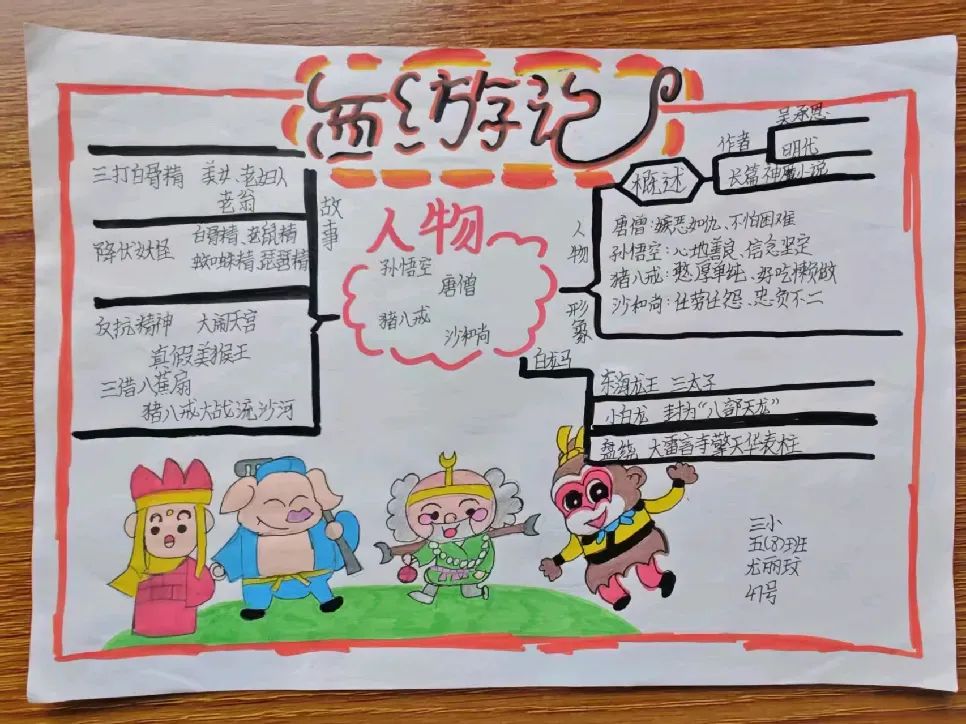 西游记
三打白骨精 美女 老妇人
老翁
降伏妖怪 白骨精、老鼠精
蜘蛛精、琵琶精
故事
反抗精神 大闹天宫
真假美猴王
三借八蕉扇
猪八戒大战流沙河
人物
孙悟空
唐僧
猪八戒
沙和尚
概述
作者
吴承恩
明代
长篇神魔小说
人物形象
唐僧:嫉恶如仇、不怕困难
孙悟空:心地善良、信念坚定
猪八戒:憨厚单纯、好吃懒做
沙和尚:任劳任怨、忠贞不二
白龙马
东海龙王 三太子
小白龙 封为“八部天龙”
盘绕 大雷音寺擎天华表柱
三小
五(8)班
尤丽玟
47号